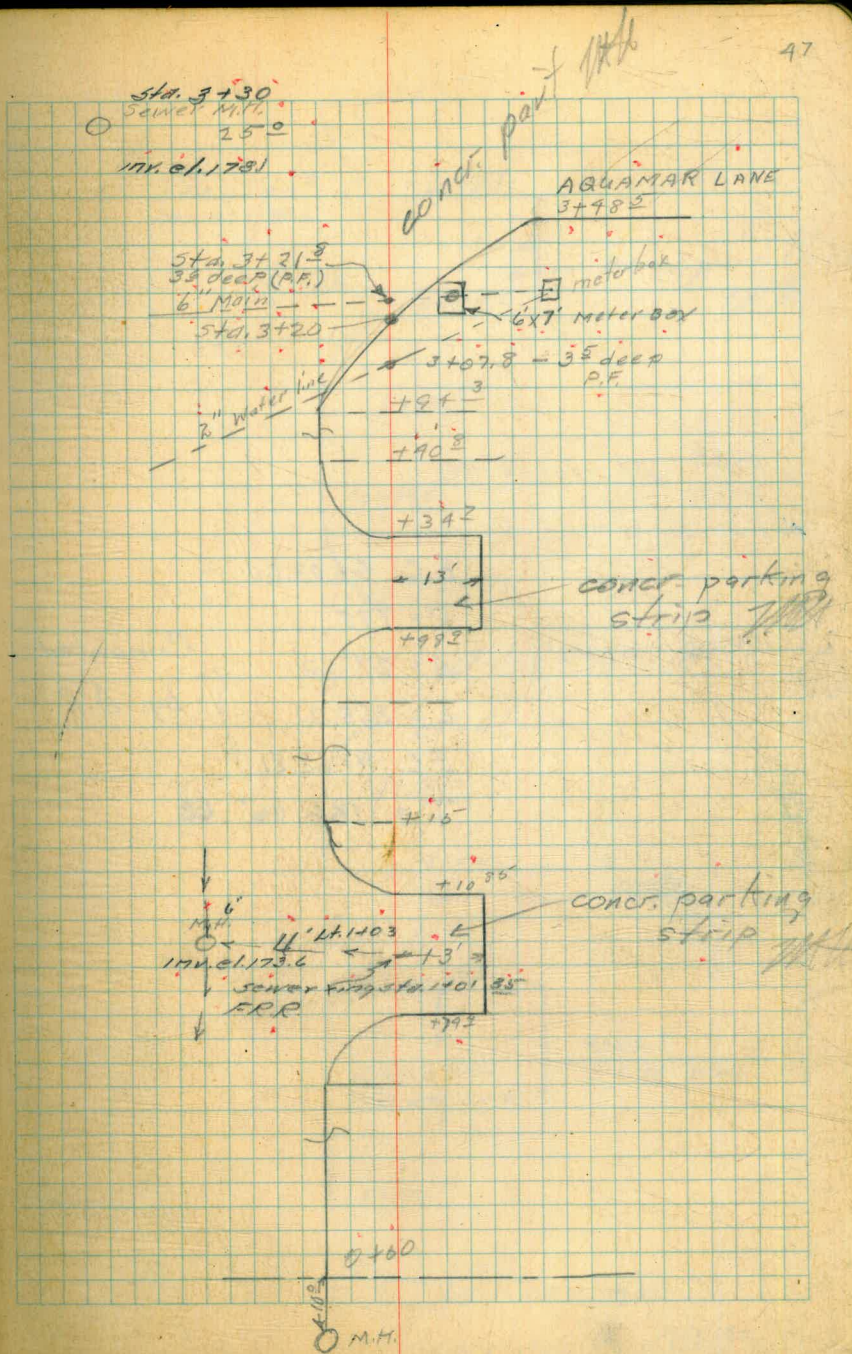 47
Std. 3+30
Sewer M.H.
25 0
inv. el. 178.1
concr. pav't
AQUAMAR LANE
3+48 5
Std. 3+21 8
3 5 deep (P.F.)
6" Main
Sta. 3+20
meter box
6'x7' Meter Box
3+07.8 - 3 5 deep
P.F.
2" Water line
+94 3
+40 8
+34 7
13'
concr. parking
strip
+98 2
+15
+10 85
concr. parking
strip
6"
M.H.
11' Lt. 1+03
13'
inv. el. 173.6
sewer ring sta. 1+01 35
+79 2
0+60
10 0
M.H.